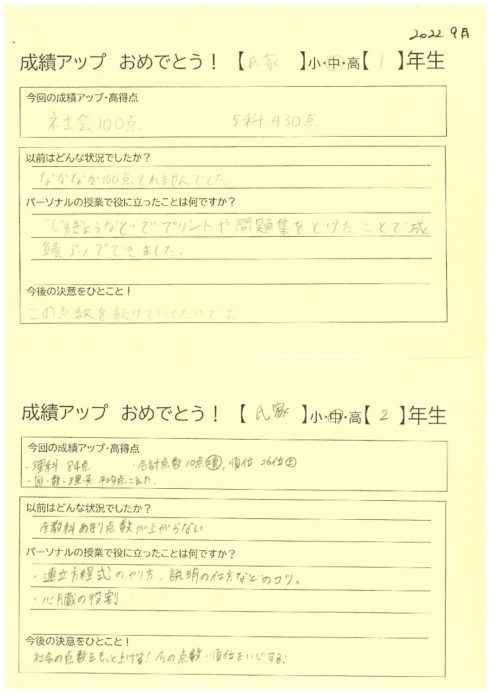 2022 9月
成績アップ おめでとう！【氏家】小・中・高【1】年生
今回の成績アップ・高得点
社会100点 5科430点
以前はどんな状況でしたか？
なかなか100点とれませんでした
パーソナルの授業で役に立ったことは何ですか？
じゅぎょうなどでプリントや問題集をとけたことで成
績アップできました。
今後の決意をひとこと！
この点数を続けていきたいです。
成績アップ おめでとう！【氏家】小・中・高【2】年生
今回の成績アップ・高得点
・理科 84点 ・合計点数10点 順位 26位
・国・数・理・英 平均点こえた。
以前はどんな状況でしたか？
全教科あまり点数が上がらない
パーソナルの授業で役に立ったことは何ですか？
・連立方程式のやり方、説明の仕方などのコツ。
・心臓の役割
今後の決意をひとこと！
社会の点数をもっと上げる！今の点数・順位をいじする！